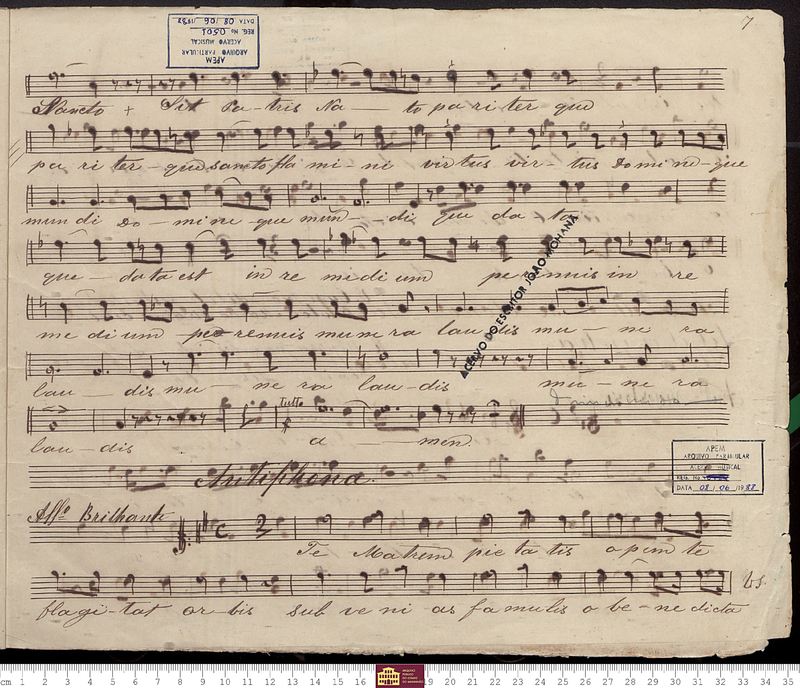 7
APEM
ARQUIVO PARTICULAR
ACERVO MUSICAL
REG. No 0501
DATA 08 / 06 / 1988
Sancto + Sit Pa-tris Na - to pa ri ter que
pa ri ter-que sancto fla mi-ni virtus vir-tus Domi ne-que
mun di Do-mi ne-que mun-di que da ta
que-data est in re midi um pe rennis in re
me di um perennis mune ra lau dis mu-ne ra
lau dis mu-ne ra lau-dis mu-ne ra
Tutti
lau-dis a men.
Antiphona.
APEM
ARQUIVO PARTICULAR
ACERVO MUSICAL
REG. No
DATA 08 / 06 / 1988
ACERVO DO ESCRITOR JOÃO MOHANA
Allº Brilhante
Te Matrem pie ta tis opem te
flagi-tat or-bis sub ve ni as famulis o be-ne dicta
Vs.
cm 1 2 3 4 5 6 7 8 9 10 11 12 13 14 15 16 19 20 21 22 23 24 25 26 27 28 29 30 31 32 33 34 35